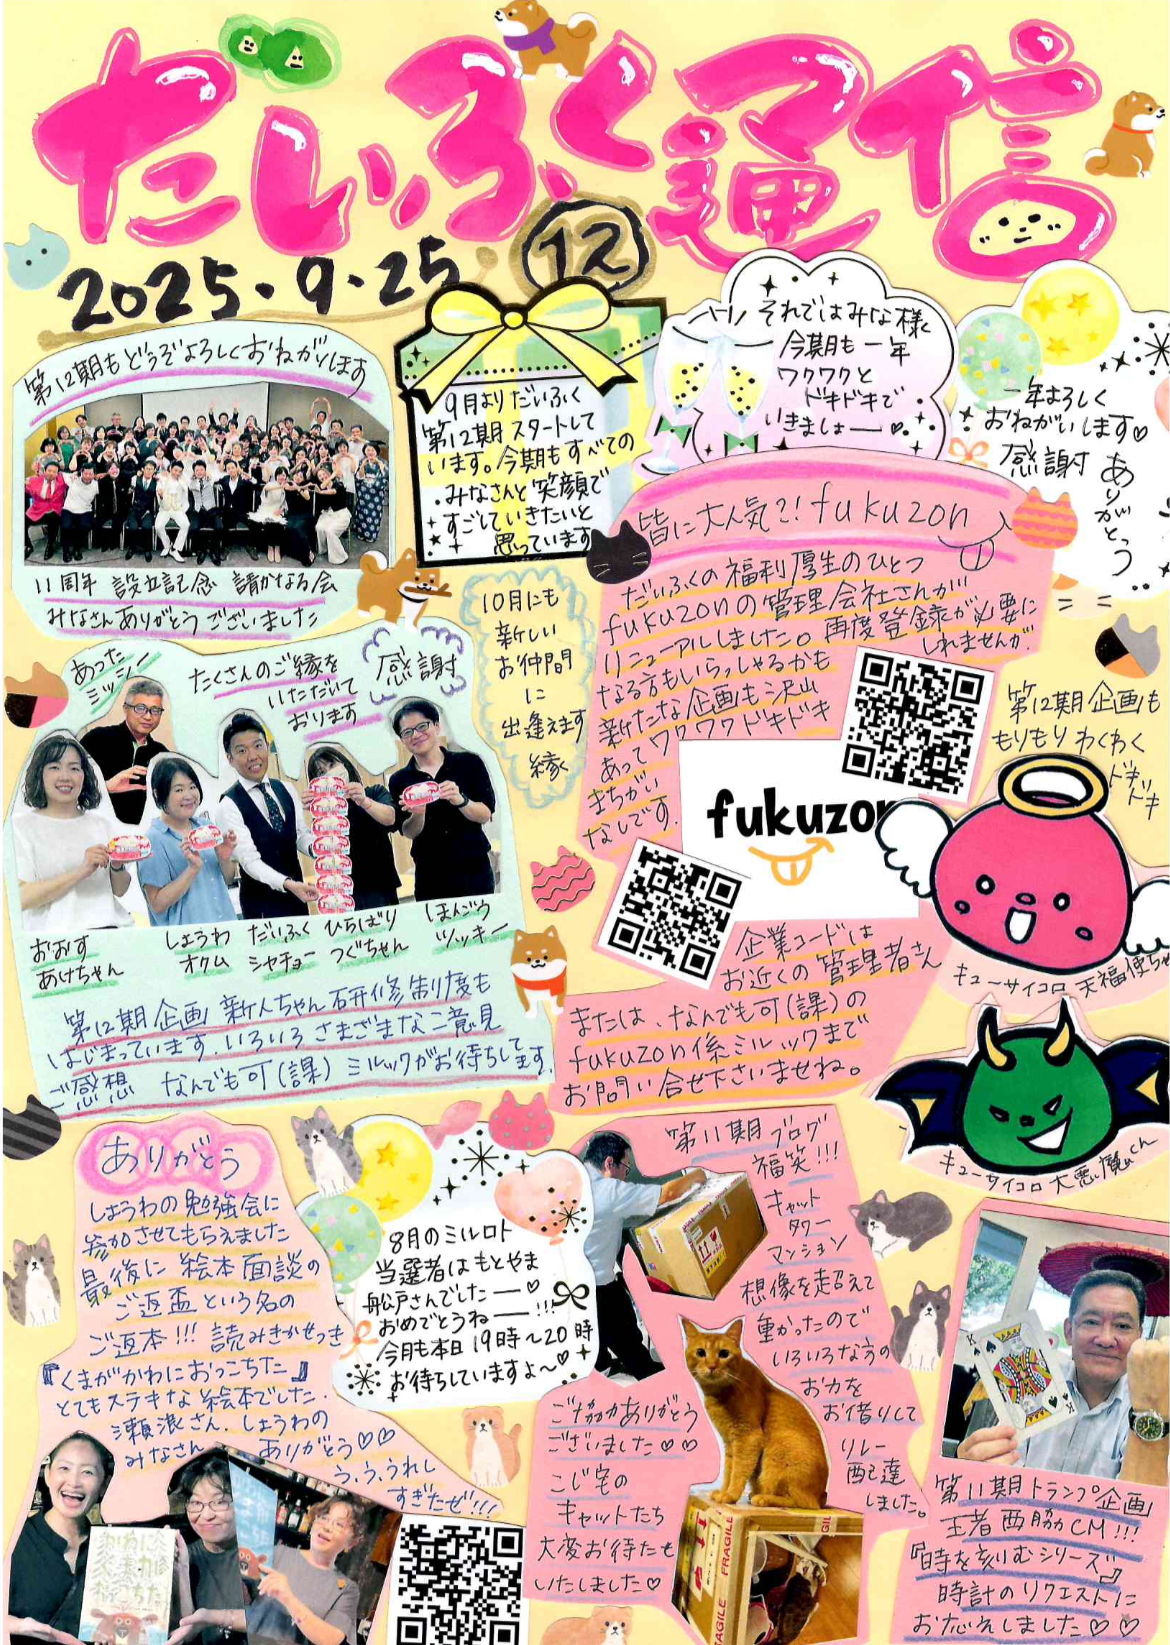 だいふく通信
2025.9.25
12
第12期もどうぞよろしくおねがいします
11周年 設立記念 静かなる会
みなさんありがとうございました
9月よりだいふく
第12期スタートして
います。今期もすべての
みなさんと笑顔で
すごしていきたいと
思っています
それではみな様
今期も一年
ワクワクと
ドキドキで
いきましょーー♡
一年よろしく
おねがいします♡
感謝
ありがとう
皆に大人気?!fukuzon
だいふくの福利厚生のひとつ
fukuzonの管理会社さんが
リニューアルしました。再度登録が必要に
なる方もいらっしゃるかも
しれませんが、
新たな企画も沢山
あってワクワクドキドキ
まちがい
なしです。
fukuzon
企業コードは
お近くの管理者さん
または、なんでも可(課)の
fukuzon係ミルックまで
お問い合せ下さいませね。
10月にも
新しい
お仲間
に
出逢えます
縁
第12期企画も
もりもりわくわく
ドキドキ
キューサイコロ 天福使ちゃ
キューサイコロ 大悪魔ch
あった
ミッシー
たくさんのご縁を
いただいて
おります
感謝
おおす
あけちゃん
しょうわ
オクム
だいふく
シャチョー
ひらばり
つぐちゃん
ほんごう
ツッキー
第12期企画 新人ちゃん研修制度も
はじまっています。いろいろさまざまなご意見
ご感想 なんでも可(課)ミルックがお待ちしてます。
ありがとう
しょうわの勉強会に
参加させてもらえました
最後に絵本面談の
ご返盃という名の
ご返本!!!読みきかせつき
『くまがかわにおっこちた』
とてもステキな絵本でした。
瀬浪さん、しょうわの
みなさん ありがとう♡♡
う、う、うれし
すぎたぜ!!!
8月のミルロト
当選者はもとやま
舩戸さんでしたー♡
おめでとうねーー!!!
今月も本日19時〜20時
お待ちしていますよ〜♡
第11期ブログ
福笑!!!
キャット
タワー
マンション
想像を超えて
重かったので
いろいろな方の
お力を
お借りして
リレー
配達
しました。
ご協力ありがとう
ございました♡♡
こじ宅の
キャットたち
大変お待たせ
いたしました♡
FRAGILE
FRAGILE
第11期トランプ企画
王者西脇CM!!!
『時を刻むシリーズ』
時計のリクエストに
お応えしました♡♡